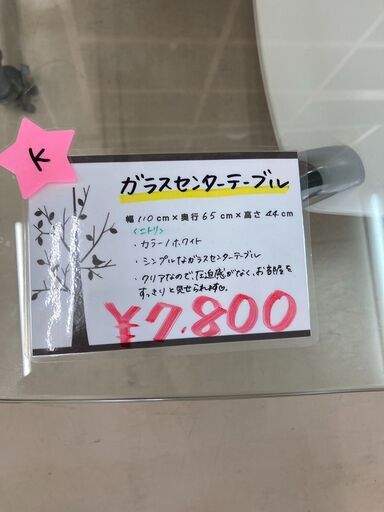 K
ガラスセンターテーブル
幅 110cm×奥行65cm×高さ44cm
〈ニトリ〉
・カラー/ホワイト
・シンプルなガラスセンターテーブル
・クリアなので、圧迫感がなく、お部屋を
すっきりと見せられます。
¥7,800